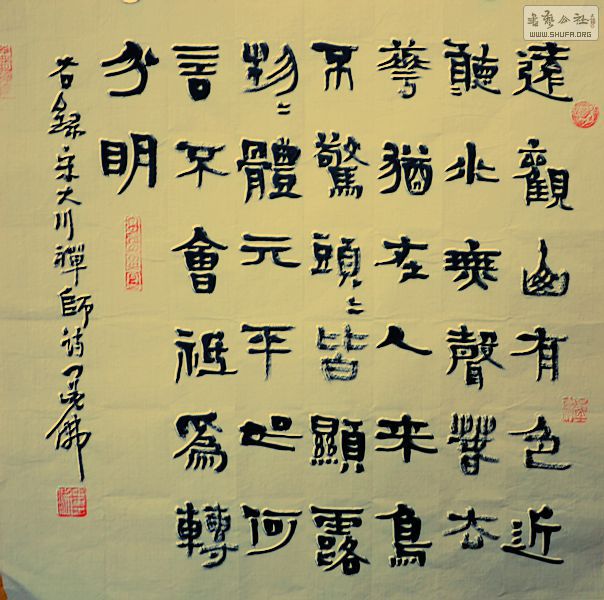 遠觀山有色近
聽水無聲春去
華猶在人來鳥
不驚頭〻皆顯露
物〻體元平如何
言不會祇為轉
分明
右錄宋大川禪師詩佛
書藝公社
WWW.SHUFA.ORG